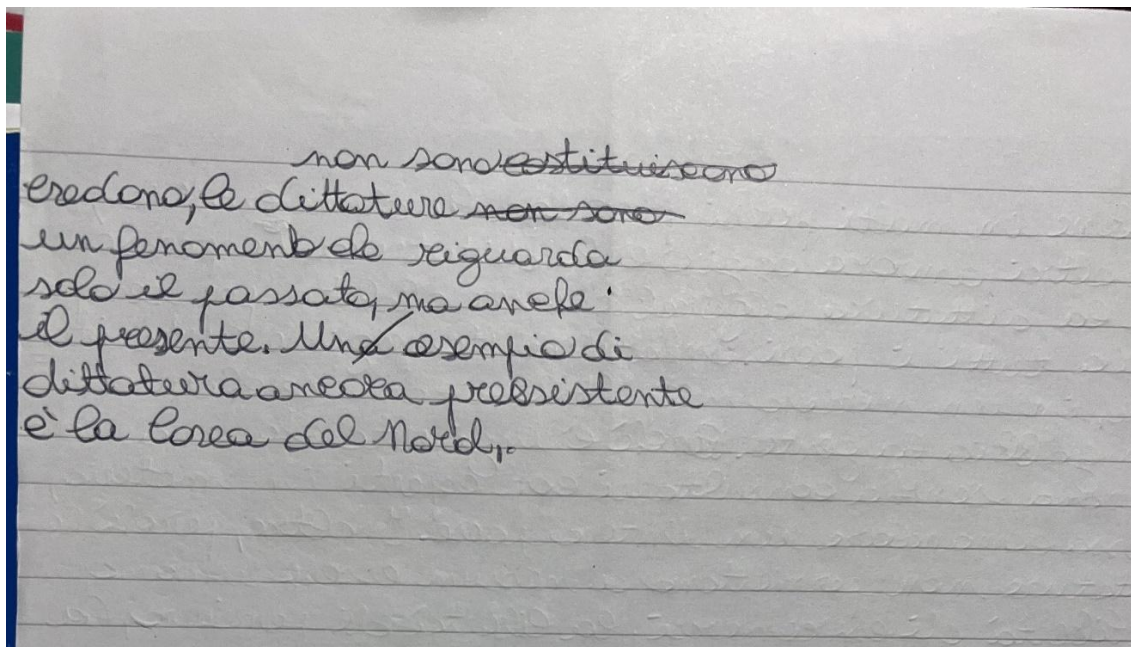 non sono costituiscono
credono, le dittature non sono
un fenomeno che riguarda
solo il passato, ma anche
il presente. Un esempio di
dittatura ancora preesistente
è la Corea del Nord.